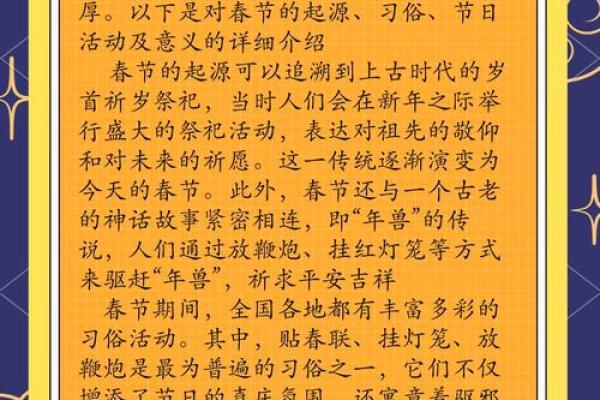 厚。以下是对春节的起源、习俗、节日
活动及意义的详细介绍
春节的起源可以追溯到上古时代的岁
首祈岁祭祀，当时人们会在新年之际举
行盛大的祭祀活动，表达对祖先的敬仰
和对未来的祈愿。这一传统逐渐演变为
今天的春节。此外，春节还与一个古老
的神话故事紧密相连，即“年兽”的传
说，人们通过放鞭炮、挂红灯笼等方式
来驱赶“年兽”，祈求平安吉祥
春节期间，全国各地都有丰富多彩的
习俗活动。其中，贴春联、挂灯笼、放
鞭炮是最为普遍的习俗之一，它们不仅
增添了节日的喜庆氛围，还寓意着驱邪